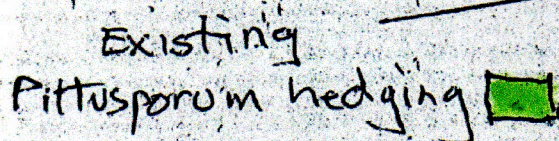 Existing
Pittusporum hedging